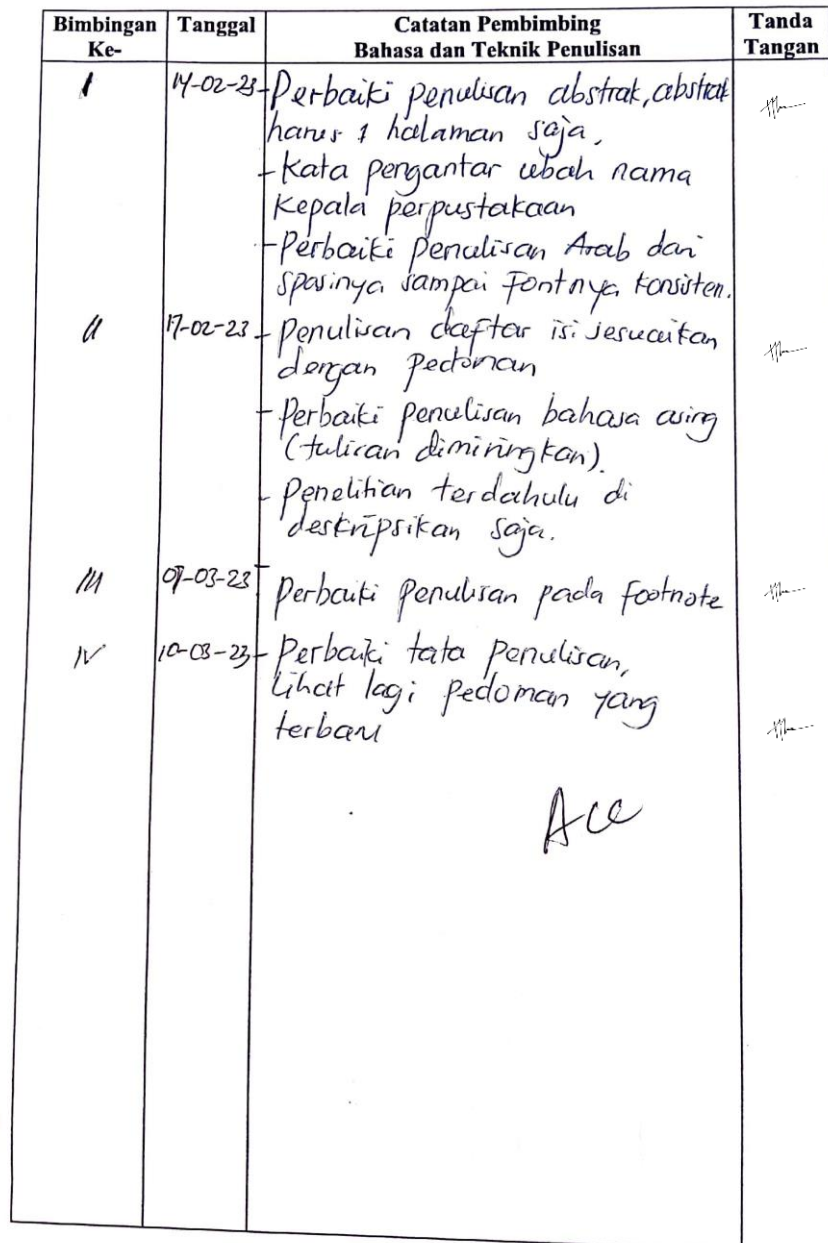 Bimbingan Ke- Tanggal Catatan Pembimbing Bahasa dan Teknik Penulisan Tanda Tangan
I 14-02-23 - Perbaiki penulisan abstrak, abstrak
harus 1 halaman saja,
- Kata pengantar ubah nama
Kepala perpustakaan
- Perbaiki Penulisan Arab dan
Spasinya sampai Fontnya Konsisten.
II 17-02-23 - Penulisan daftar isi sesuaikan
dengan Pedoman
- Perbaiki penulisan bahasa asing
(tulisan dimiringkan).
- Penelitian terdahulu di
deskripsikan saja.
III -03-23 - Perbaiki Penulisan pada footnote
IV 10-03-23 - Perbaiki tata Penulisan,
Lihat lagi Pedoman yang
terbaru
Acc